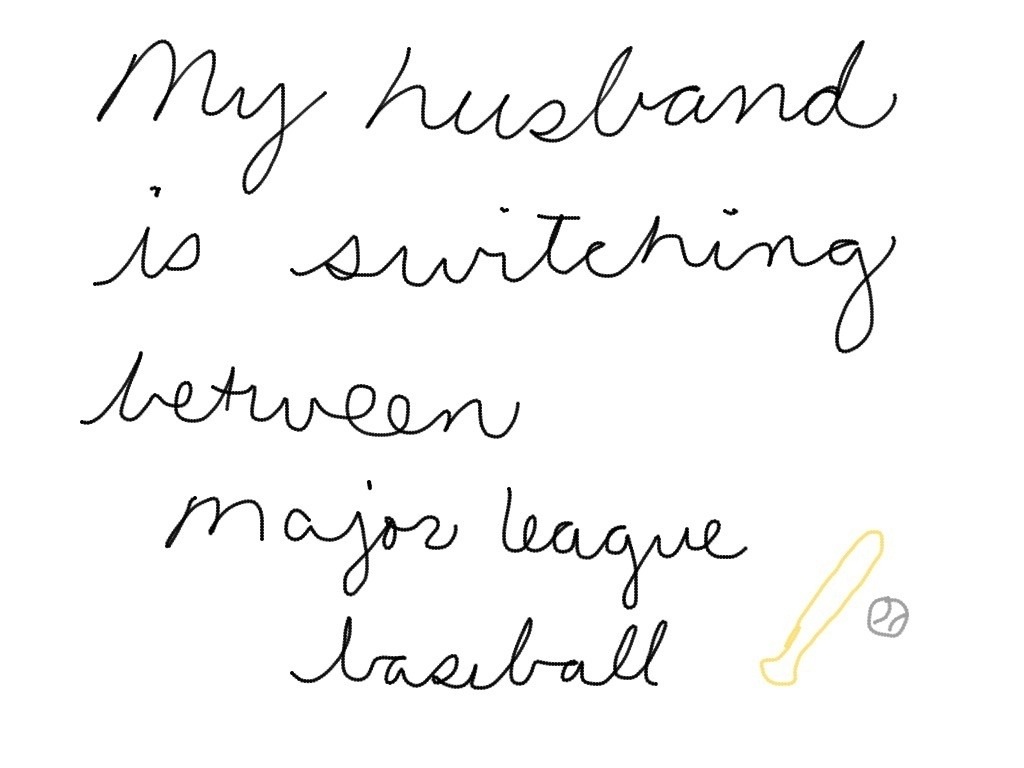 My husband
is switching
between
major league
baseball